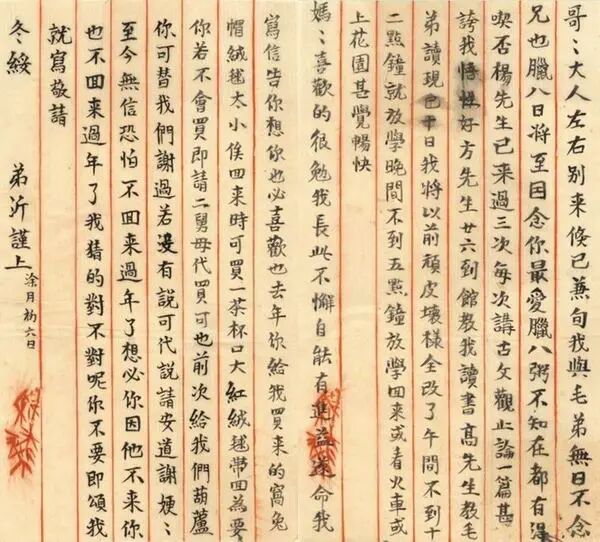 哥〻大人左右别来倏已蒹旬我與毛弟無日不念
兄也臘八日将至因念你最爱臘八粥不知在都有得
喫否楊先生已来過三次每次講古文觀止論一篇甚
誇我悟性好方先生廿六到館教我讀書高先生教毛
弟讀現已十日我将以前頑皮壞樣全改了午間不到十
二點鐘就放學晚間不到五點鐘放學回来或看火車或
上花園甚覺暢快
媽〻喜歡的很勉我長此不懈自能有進益遂命我
寫信告你想你也必喜歡也去年你給我買来的窩兔
帽絨毬太小俟回来時可買一茶杯口大紅絨毬帶回為要
你若不會買即請二舅母代買可也前次給我們葫蘆
你可替我們謝過若没有説可代説請安道謝㛐〻
至今無信恐怕不回来過年了想必你因他不来你
也不回来過年了我猜的對不對呢你不要即頌我
就寫敬請
冬綏 弟沂謹上 涂月初六日